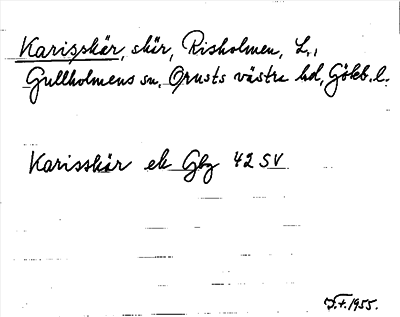 Karisskär, skär, Risholmen, L.,
Gullholmens sn, Orusts västra hd, Göteb. l.
Karisskär ek Gbg 42 SV
1955.